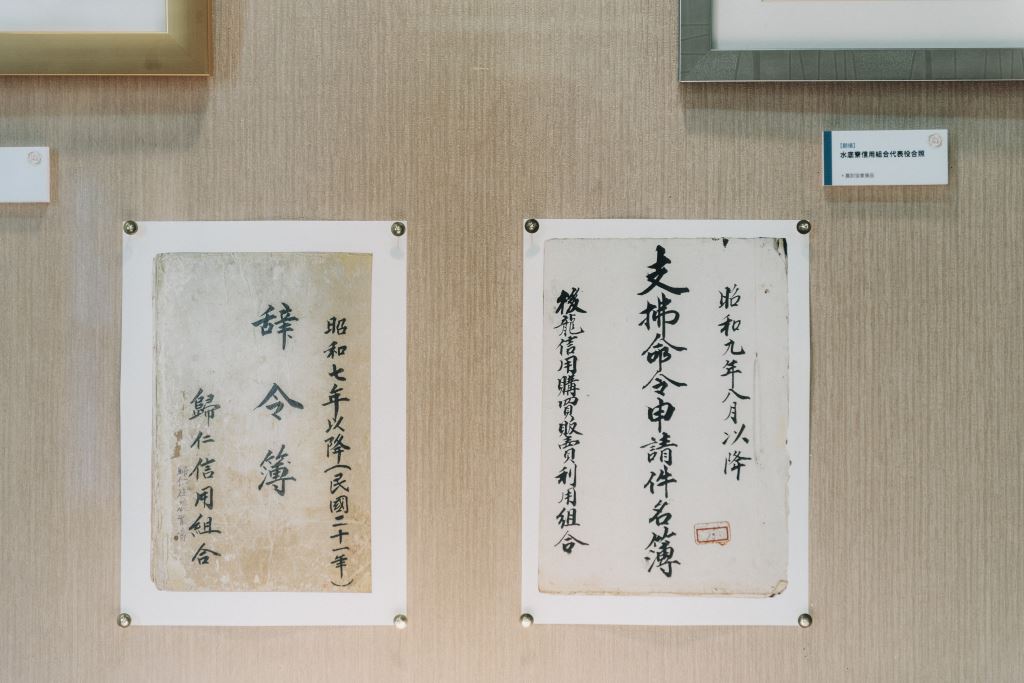 昭和七年以降(民國二十一年)
辞令簿
歸仁信用組合
昭和九年八月以降
支拂命令申請件名簿
後龍信用購買販賣利用組合
水底寮信用組合代表役合照